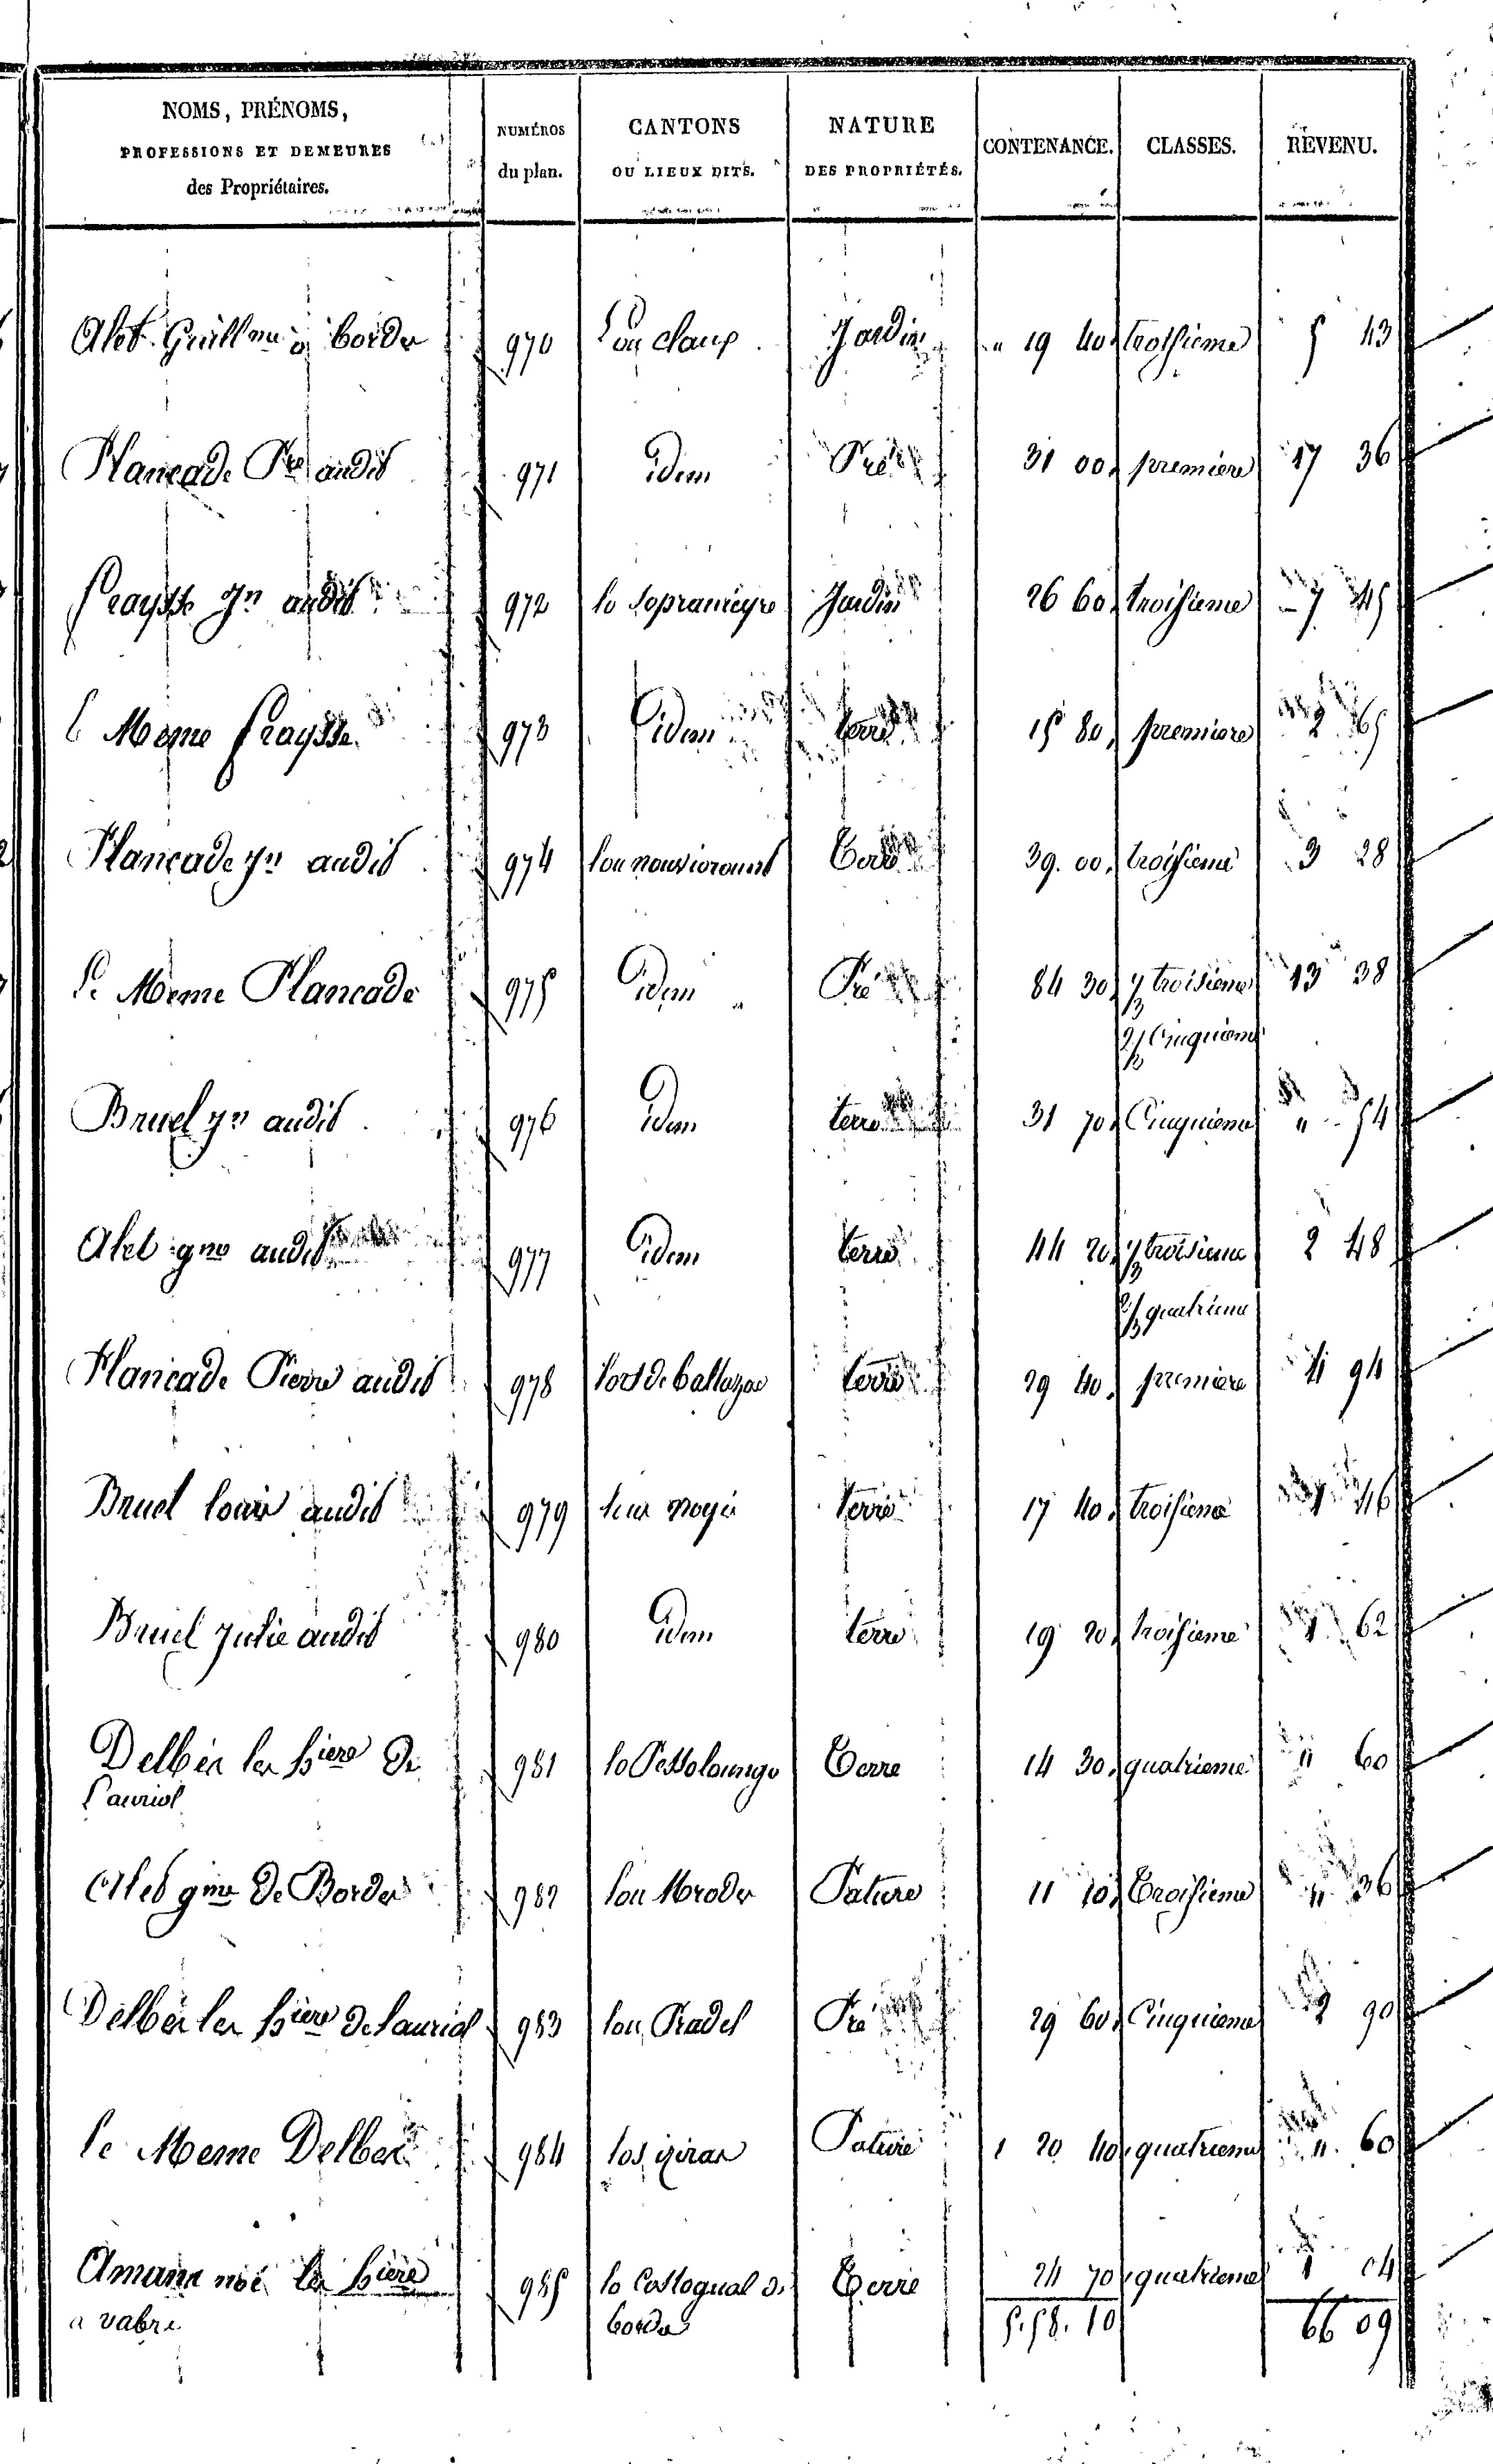 NOMS, PRÉNOMS,
PROFESSIONS ET DEMEURES
des Propriétaires.
NUMÉROS
du plan.
CANTONS
OU LIEUX DITS.
NATURE
DES PROPRIÉTÉS.
CONTENANCE.
CLASSES.
REVENU.
Alet Guillme à bordes 970 Lou claup Jardin " 19 40 troisieme 5 43
Plancade Pre audit 971 idem Pré 31 00 premiere 17 36
fraysse Jn audit 972 lo Sopranieyro Jardin 26 60 troisieme 7 45
le Meme fraysse 973 idem terre 15 80 premiere 2 65
Plancade Jn audit 974 lou Terre 39. 00 troisieme 3 28
le Meme Plancade 975 idem Pré 84 30 1/3 troisieme 13 38
2/3 Cinquieme
Bruel Jn audit 976 idem terre 31 70 Cinquieme " 54
Alet gme audit 977 idem terre 44 20 1/3 troisieme 2 48
2/3 quatrieme
Plancade Pierre audit 978 terre 29 40 premiere 4 94
Bruel louis audit 979 terre 17 40 troisieme 1 46
Bruel Julie audit 980 idem terre 19 20 troisieme 1 62
Delbes les hiers de 981 Terre 14 30 quatrieme " 60
lauriol
Alet gme de Bordes 982 Pature 11 10 Troisieme " 36
Delbes les hiers de lauriol 983 lou Pradel Pré 29 60 Cinquieme 2 90
le Meme Delbes 984 Pature 1 20 40 quatrieme " 60
les hiers 985 lo Castagnal de Terre 24 70 quatrieme 1 04
a vabre bordes
5. 58. 10 66 09